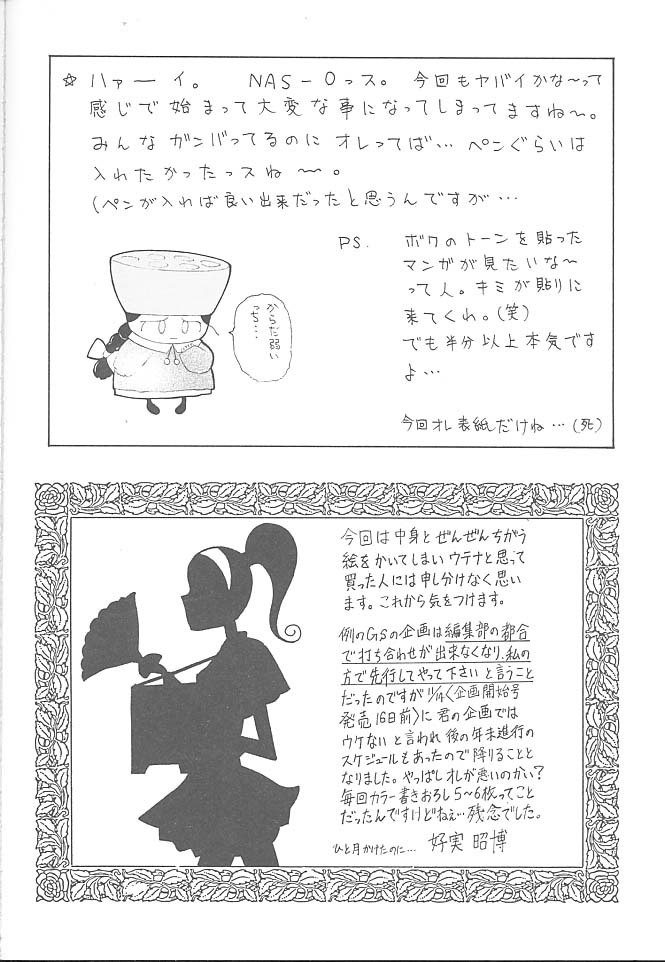 ☆ ハァーイ。 NAS-Oっス。今回もヤバイかな〜って
感じで始まって大変な事になってしまってますね〜。
みんなガンバってるのに オレってば… ペンぐらいは
入れたかったっスね 〜。
(ペンが入れば良い出来だったと思うんですが…
PS. ボクのトーンを貼った
マンガが見たいな〜
って人。キミが貼りに
来てくれ。(笑)
でも半分以上本気です
よ…
からだ弱い
っち…
今回オレ表紙だけね…(死)
今回は中身とぜんぜんちがう
絵をかいてしまいウテナと思って
買った人には申し分けなく思い
ます。これから気をつけます。
例のGSの企画は編集部の都合
で打ち合わせが出来なくなり、私の
方で先行してやって下さいと言うこと
だったのですが 11/14〈企画開始号
発売16日前〉に君の企画では
ウケないと言われ後の年末進行の
スケジュールもあったので降りることと
なりました。やっぱしオレが悪いのかい?
毎回カラー書きおろし5〜6枚ってこと
だったんですけどねぇ… 残念でした。
ひと月かけたのに… 好実 昭博